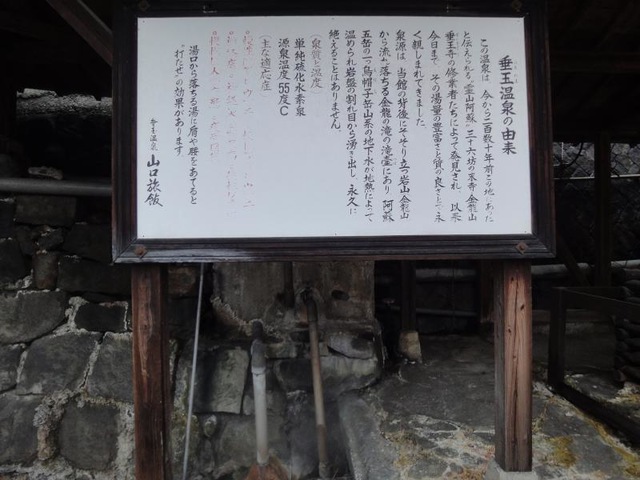 垂玉温泉の由来
この温泉は 今から二百数十年前この地にあった
と伝えられる、霊山阿蘇三十六坊の末寺 金龍山
垂玉寺の修業者たちによって発見され、以来
今日まで その湯量の豊富さと質の良さとで、永
く親しまれてきました。
泉源は 当館の背後にそそり立つ岩山 金龍山
から流れ落ちる金龍の滝の滝壷にあり 阿蘇
五岳の一つ烏帽子岳山系の地下水が地熱によって
温められ岩盤の割れ目から湧き出し、永久に
絶えることはありません。
(泉質と温度)
単純硫化水素泉
源泉温度 55度C
(主な適応症)
湯口から落ちる湯に肩や腰をあてると
"打たせ"の効果があります
垂玉温泉 山口旅館